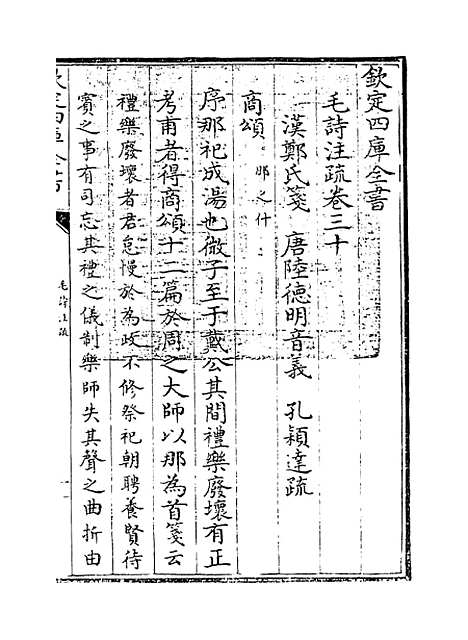 欽定四庫全書
毛詩注疏卷三十
漢鄭氏箋 唐陸德明音義 孔穎達疏
商頌 那之什
序那祀成湯也微子至于戴公其間禮樂廢壞有正
考甫者得商頌十二篇於周之大師以那為首箋云
禮樂廢壞者君怠慢於為政不修祭祀朝聘養賢待
賓之事有司忘其禮之儀制樂師失其聲之曲折由
欽定四庫全書
毛詩注疏
一